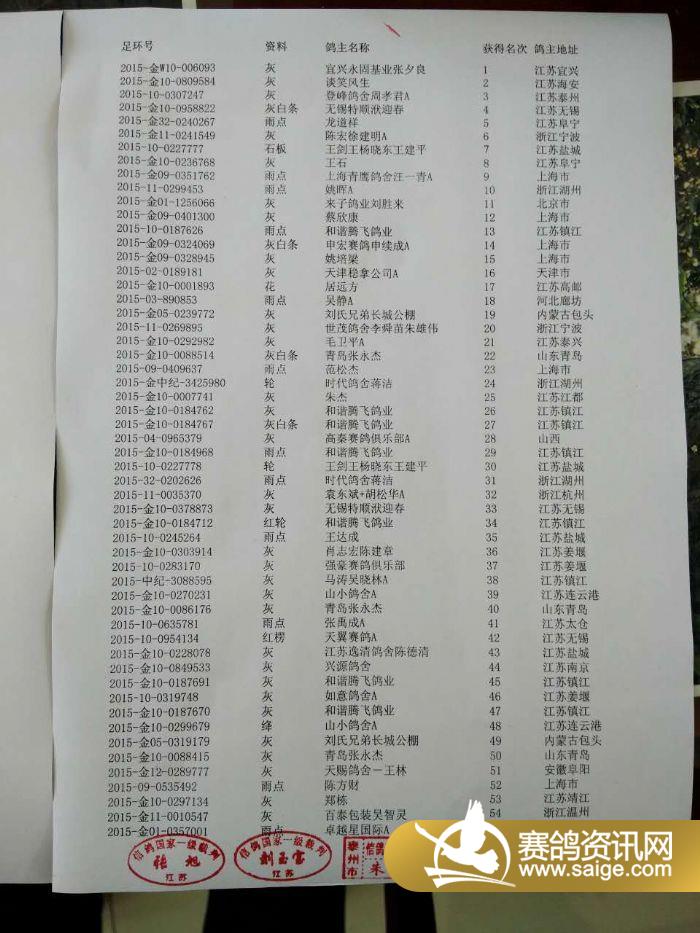 足环号 资料 鸽主名称 获得名次 鸽主地址
2015-金W10-006093 灰 宜兴永固基业张夕良 1 江苏宜兴
2015-金10-0809584 灰 谈笑风生 2 江苏海安
2015-10-0307247 灰 登峰鸽舍周孝君A 3 江苏泰州
2015-金10-0958822 灰白条 无锡特顺洑迎春 4 江苏无锡
2015-金32-0240267 雨点 龙道祥 5 江苏阜宁
2015-金11-0241549 灰 陈宏徐建明A 6 浙江宁波
2015-10-0227777 石板 王剑王杨晓东王建平 7 江苏盐城
2015-金10-0236768 灰 王石 8 江苏阜宁
2015-金09-0351762 雨点 上海青鹰鸽舍汪一青A 9 上海市
2015-11-0299453 雨点 姚晖A 10 浙江湖州
2015-金01-1256066 灰 来子鸽业刘胜来 11 北京市
2015-金09-0401300 灰 蔡欣康 12 上海市
2015-10-0187626 雨点 和谐腾飞鸽业 13 江苏镇江
2015-金09-0324069 灰白条 申宏赛鸽申续成A 14 上海市
2015-金09-0328945 灰 姚培梁 15 上海市
2015-02-0189181 灰 天津稳拿公司A 16 天津市
2015-金10-0001893 花 居远方 17 江苏高邮
2015-03-890853 雨点 吴静A 18 河北廊坊
2015-金05-0239772 灰 刘氏兄弟长城公棚 19 内蒙古包头
2015-11-0269895 灰 世茂鸽舍李舜苗朱雄伟 20 浙江宁波
2015-金10-0292982 灰 毛卫平A 21 江苏泰兴
2015-金10-0088514 灰白条 青岛张永杰 22 山东青岛
2015-09-0409637 雨点 范松杰 23 上海市
2015-金中纪-3425980 轮 时代鸽舍蒋洁 24 浙江湖州
2015-金10-0007741 灰 朱杰 25 江苏江都
2015-金10-0184762 灰 和谐腾飞鸽业 26 江苏镇江
2015-金10-0184767 灰白条 和谐腾飞鸽业 27 江苏镇江
2015-04-0965379 灰 高秦赛鸽俱乐部A 28 山西
2015-金10-0184968 雨点 和谐腾飞鸽业 29 江苏镇江
2015-10-0227778 轮 王剑王杨晓东王建平 30 江苏盐城
2015-32-0202626 雨点 时代鸽舍蒋洁 31 浙江湖州
2015-11-0035370 灰 袁东斌+胡松华A 32 浙江杭州
2015-金10-0378873 灰 无锡特顺洑迎春 33 江苏无锡
2015-金10-0184712 红轮 和谐腾飞鸽业 34 江苏镇江
2015-10-0245264 雨点 王达成 35 江苏盐城
2015-金10-0303914 灰 肖志宏陈建章 36 江苏姜堰
2015-10-0283170 灰 强豪赛鸽俱乐部 37 江苏姜堰
2015-中纪-3088595 灰 马涛吴晓林A 38 江苏镇江
2015-金10-0270231 灰 山小鸽舍A 39 江苏连云港
2015-金10-0086176 灰 青岛张永杰 40 山东青岛
2015-10-0635781 雨点 张禹成A 41 江苏太仓
2015-10-0954134 红楞 天翼赛鸽A 42 江苏无锡
2015-金10-0228078 灰 江苏逸清鸽舍陈德清 43 江苏盐城
2015-金10-0849533 灰 兴源鸽舍 44 江苏南京
2015-金10-0187691 灰 和谐腾飞鸽业 45 江苏镇江
2015-10-0319748 灰 如意鸽舍A 46 江苏姜堰
2015-金10-0187670 灰 和谐腾飞鸽业 47 江苏镇江
2015-金10-0299679 绛 山小鸽舍A 48 江苏连云港
2015-金05-0319179 灰 刘氏兄弟长城公棚 49 内蒙古包头
2015-金10-0088415 灰 青岛张永杰 50 山东青岛
2015-金12-0289777 灰 天赐鸽舍－王林 51 安徽阜阳
2015-09-0535492 雨点 陈方财 52 上海市
2015-金10-0297134 灰 郑栋 53 江苏靖江
2015-金11-0010547 灰 百泰包装吴智灵 54 浙江温州
2015-金01-0357001 雨点 卓越星国际A
信鸽国家一级裁判 张旭 江苏
信鸽国家一级裁判 江苏
泰州市 信鸽 朱
赛鸽资讯网
www.saige.com